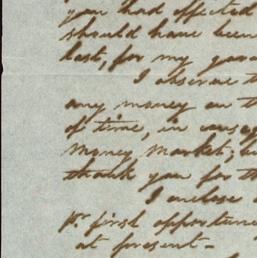 you had effected
should have been
last, for my
I observe
any money on
of time, in
money market;
thank you for
I enclose
pr. first
at present-